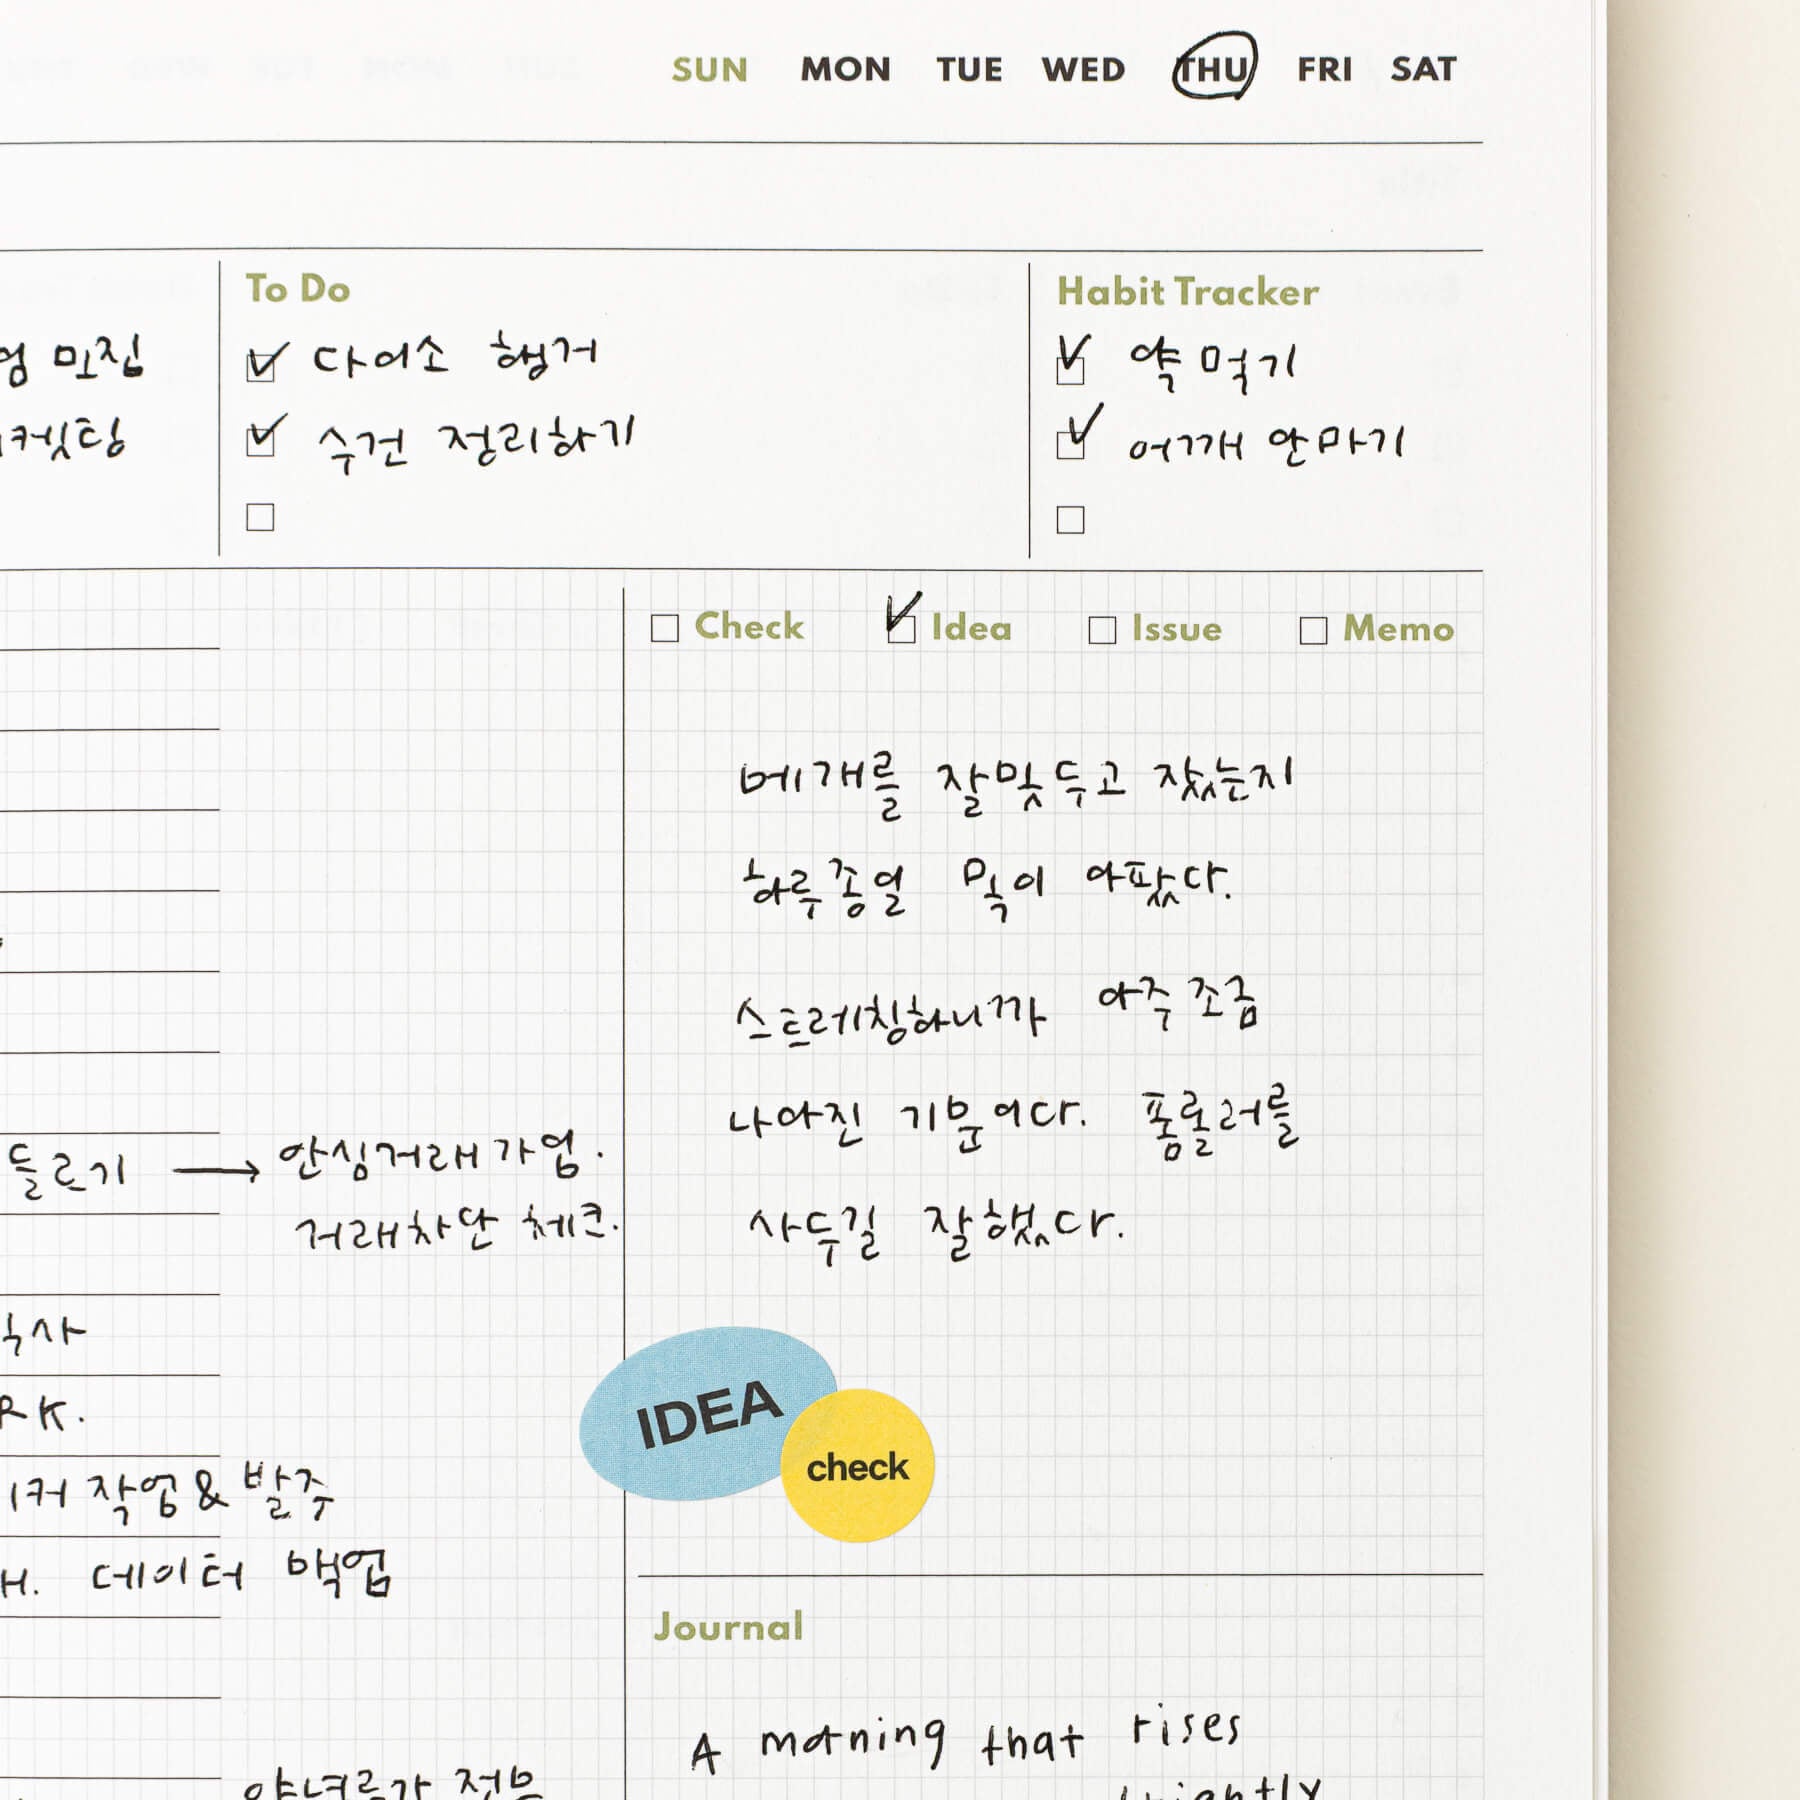 SUN MON TUE WED THU FRI SAT
To Do
다이소 행거
수건 정리하기
Habit Tracker
약 먹기
어깨 안마기
미집
케팅
Check Idea Issue Memo
베개를 잘못 두고 잤는지
하루종일 목이 아팠다.
스트레칭하니까 아주 조금
나아진 기분이다. 폼롤러를
사두길 잘했다.
들르기 → 안심거래 가업.
거래차단 체크.
식사
RK.
커 작업 & 발주
H. 데이터 백업
IDEA
check
Journal
A morning that rises